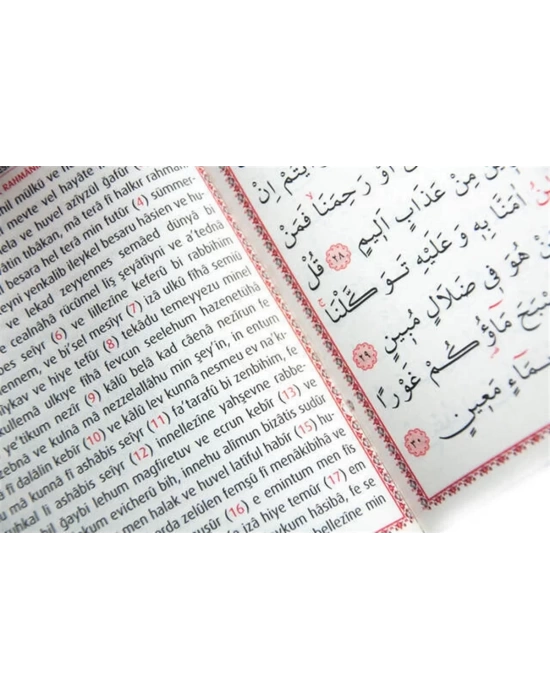 RAHMANİ
mil mülkü ve
meyte vel hayate
ela ve huvel azîyzül gafûr (2)
tıbâkan, mâ terâ fi halkır rahmani
besara hel terâ min futûr (4) sümmer-
yenkalib ileykel besaru hâsien ve hu-
ve lekad zeyyennes semâed dünyâ bi
cealnâhâ rücûmel liş şeyâtiyni ve a'tednâ
bes seiyr (6) ve lillezîne keferû bi rabbihim
ennem, ve bi'sel mesîyr (7) izâ ulkû fîhâ semiû
ve hiye tefûr (8) tekâdu temeyyezu minel
kullemâ ulkıye fîhâ fevcun seelehum hazenetühâ
e'tikum nezîr (9) kâlû belâ kad câenâ nezîrun fe
zebnâ ve kulnâ mâ nezzelallâhu min şey'in, in entum
fi dalâlin kebîr (10) ve kâlû lev kunnâ nesmeu ev na'kı-
mâ kunnâ fi ashâbis seiyr (11) fa'tarafû bi zenbihim, fe
uhkal li ashâbis seiyr (12) innellezîne yahşevne rabbe-
bil ğaybi lehum mağfiretuv ve ecrun kebîr (13) ve
evicherû bih, innehu alîmun bizâtis sudûr
men halak ve huvel latîful habîr (15) hu-
arda zelûlen femşû fî menâkibihâ ve
nuşûr (16) e emintum men fis
izâ hiye temûr (17) em
aykum hâsibâ, fe se
bellezîne min
اَوْ رَحِمَنَاۙ فَمَنْ
مِنْ عَذَابٍ اَل۪يمٍ ٢٨ قُلْ
اٰمَنَّا بِه۪ وَعَلَيْهِ تَوَكَّلْنَاۚ
هُوَ ف۪ي ضَلَالٍ مُب۪ينٍ ٢٩
مَٓاؤُ۬كُمْ غَوْرًا
مَع۪ينٍ ٣٠